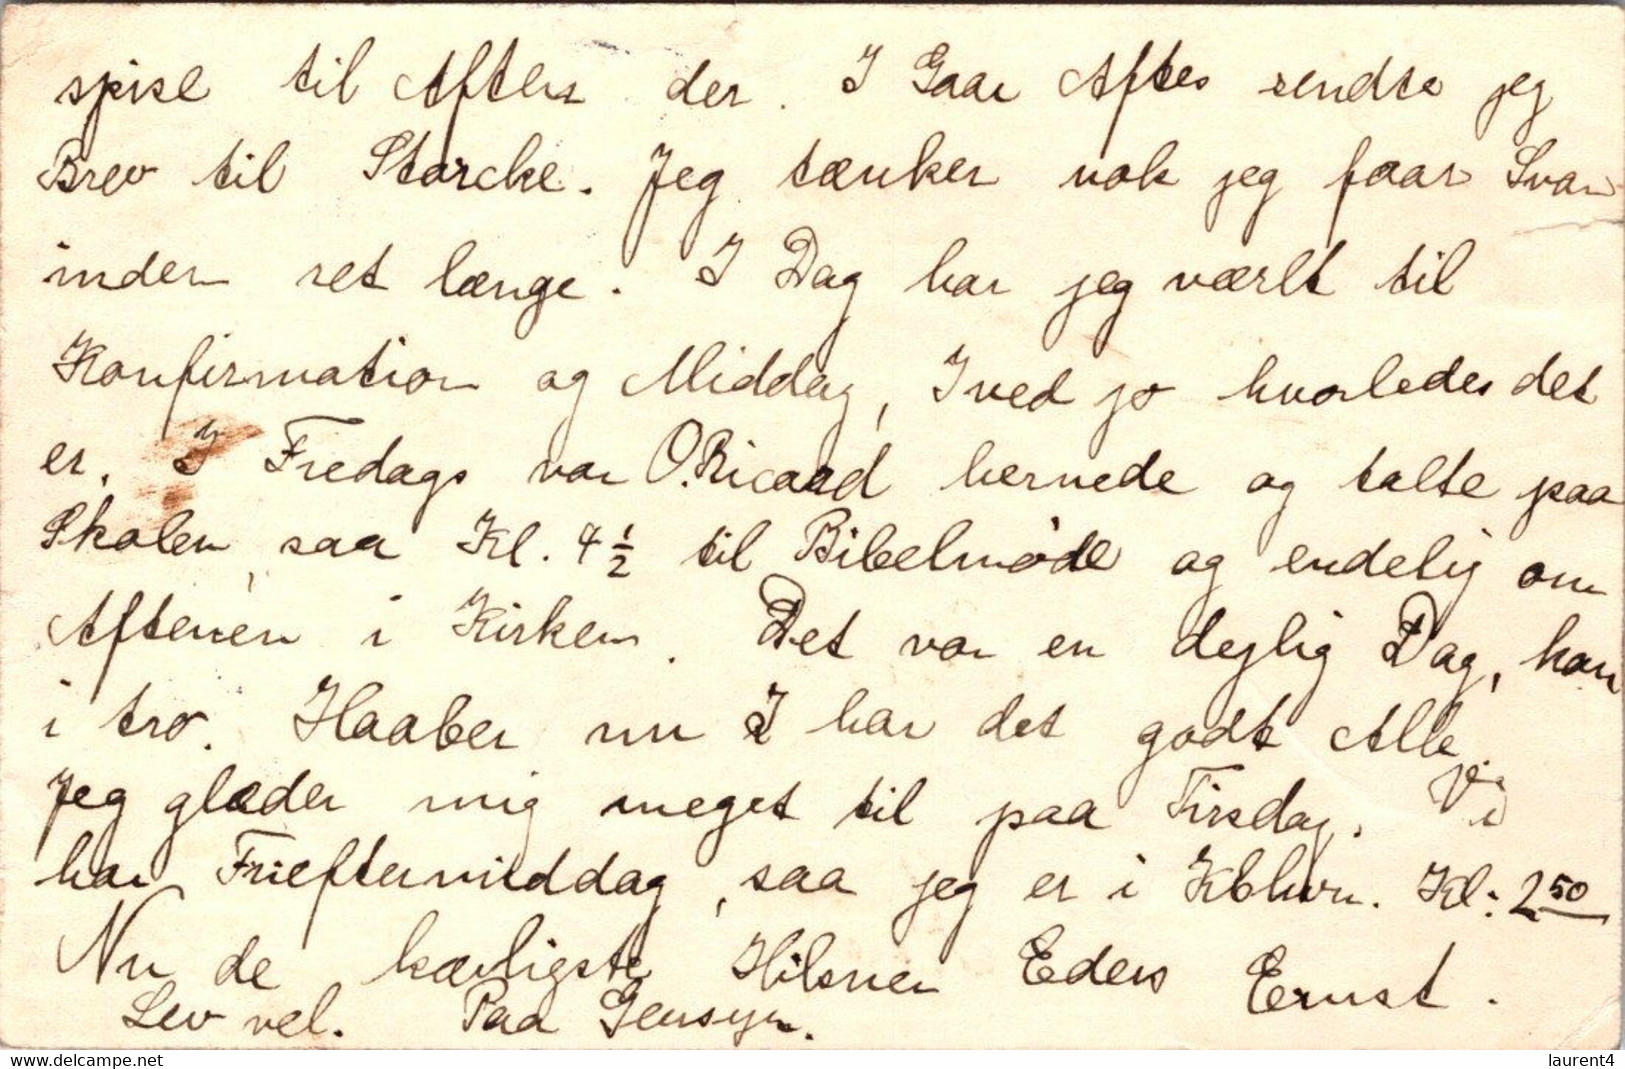 spise til Aften der. I Gaar Aftes sendte jeg
Brev til Starcke. Jeg tænker nok jeg faar Svar
inden ret længe. I Dag har jeg værlt til
Konfirmation og Middag, I ved jo hvorledes det
er. I Fredags var O. Ricard hernede og talte paa
Skolen, saa Kl. 4 1/2 til Bibelmøde og endelig om
Aftenen i Kirken. Det var en dejlig Dag, kan
i tro. Haaber nu I har det godt Alle.
Jeg glæder mig meget til paa Tirsdag. Vi
har Frieftermiddag, saa jeg er i Kbhvn. Kl: 2 50
Nu de kærligste Hilsner Eders Ernst.
Lev vel. Paa Gensyn.
delcampe.net
laurent4